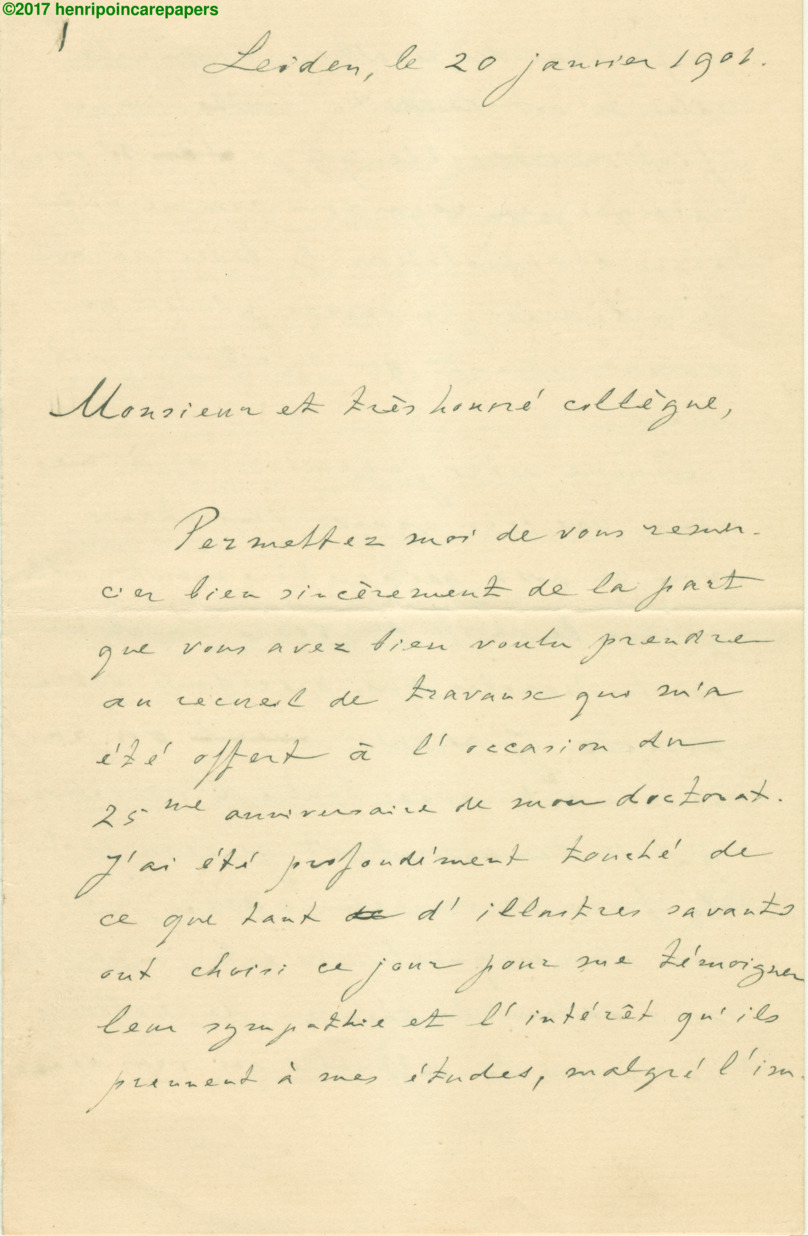 ©2017 henripoincarepapers
1
Leiden, le 20 janvier 1901.
Monsieur et très honoré collègue,
Permettez moi de vous remer-
cier bien sincèrement de la part
que vous avez bien voulu prendre
au recueil de travaux qui m'a
été offert à l'occasion du
25me anniversaire de mon doctorat.
J'ai été profondément touché de
ce que tant de d'illustres savants
ont choisi ce jour pour me témoigner
leur sympathie et l'intérêt qu'ils
prennent à mes études, malgré l'im-